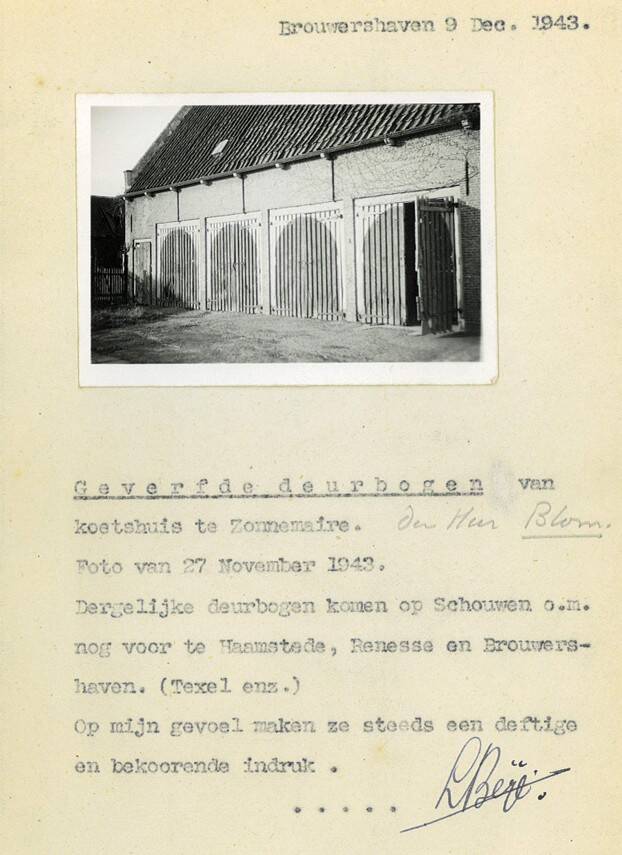 Brouwershaven 9 Dec. 1943.
Geverfde deurbogen van
koetshuis te Zonnemaire. den Heer Blom.
Foto van 27 November 1943.
Dergelijke deurbogen komen op Schouwen o.m.
nog voor te Haamstede, Renesse en Brouwers-
haven. (Texel enz.)
Op mijn gevoel maken ze steeds een deftige
en bekoorende indruk .
. . . . .